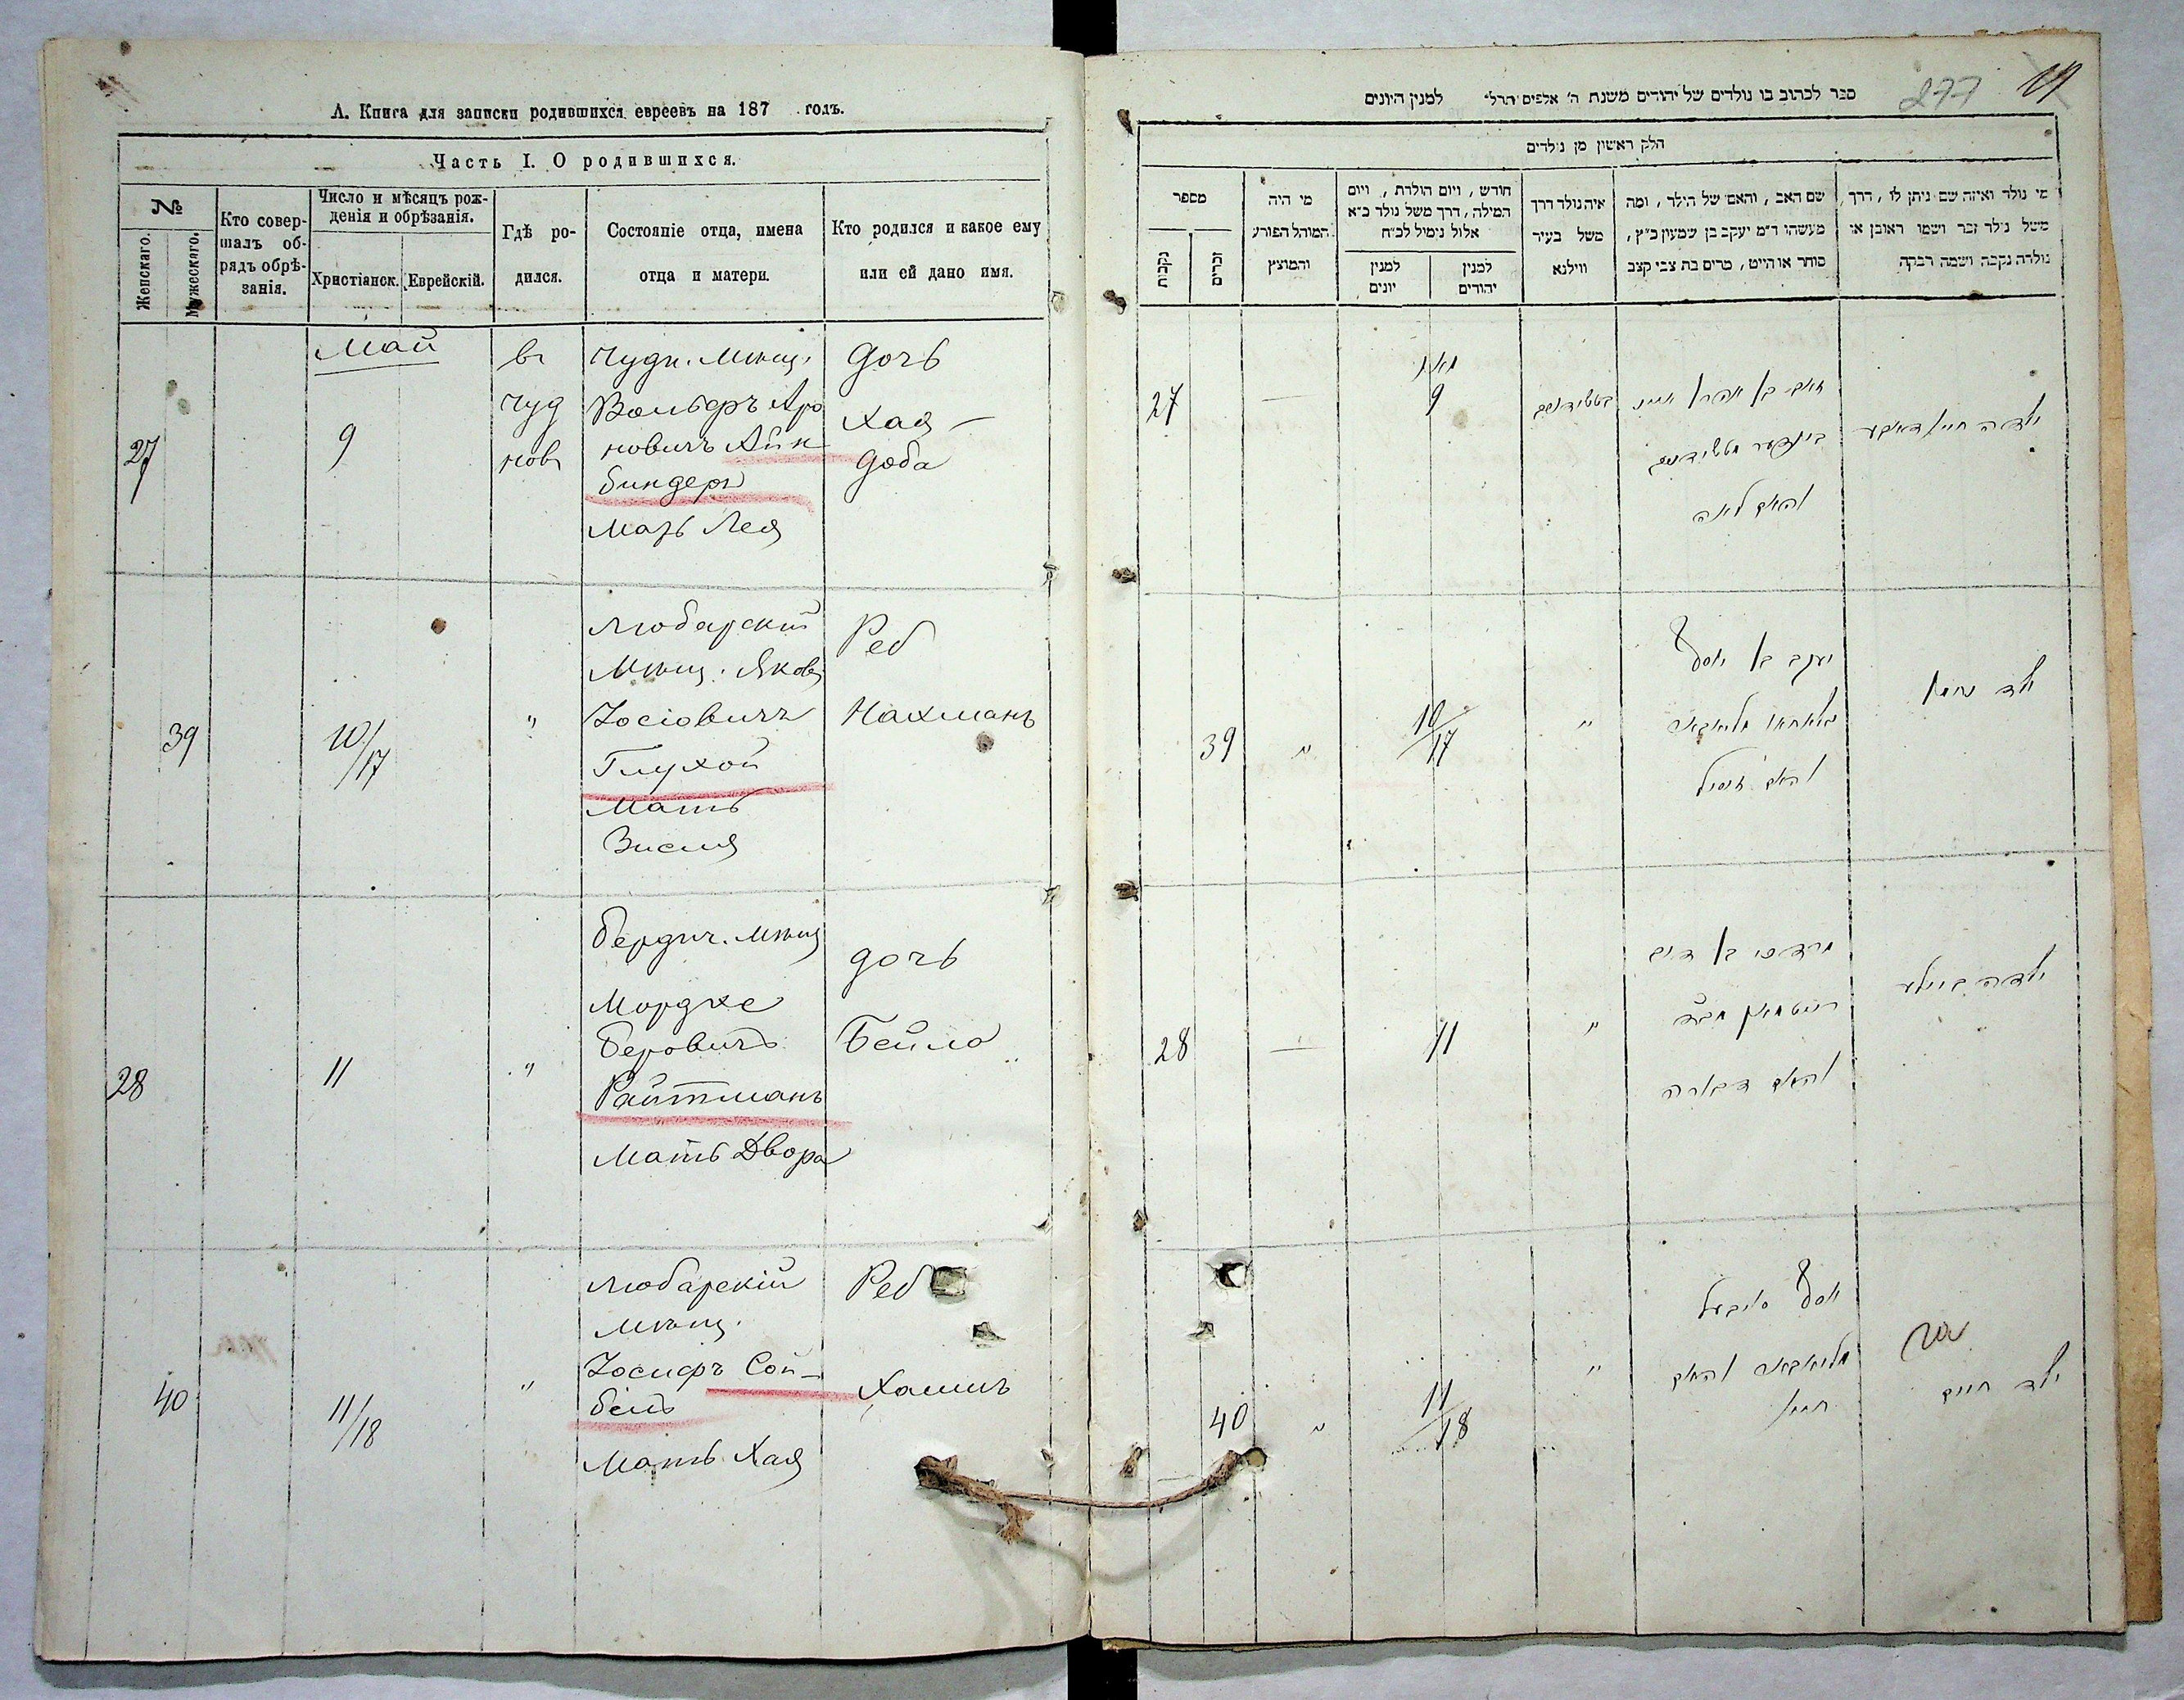 А. Книга для записки родившихся евреевъ на 187 годъ.
Часть I. О родившихся.
№
Женскаго.
Мужескаго.
Кто совершалъ об-
рядъ обрѣ-
занія.
Число и мѣсяцъ рож-
денія и обрѣзанія.
Христіанск.
Еврейскій.
Гдѣ ро-
дился.
Состояніе отца, имена
отца и матери.
Кто родился и какое ему
или ей дано имя.
Май
27
9
в
Чуд
нов
Чудн. Мѣщ.
Вольфъ Аро
новичъ Айн
биндеръ
Мать Лея
Дочь
Хая –
Доба
39
10/17
"
Любарскій
Мѣщ. Яковъ
Іосіовичъ
Глухой
Мать
Зисля
Реб
Нахманъ
28
11
"
Бердич. Мѣщ
Мордхе
Беровичъ
Райтманъ
Мать Двора
дочь
Бейла
40
11/18
"
Любарскій
Мѣщ.
Іосифъ Сой-
бель
Мать Хая
Реб
Хаимъ
277
ספר לכתוב בו נולדים של יהודים משנת ה' אלפים תרל" למנין היונים
חלק ראשון מן נולדים
מספר
נקבות
זכרים
מי היה
המוהל הפורע
והמוצץ
חודש, ויום הולדת, ויום
המילה, דרך משל נולד כ"א
אלול נימול לכ"ח
למנין
יונים
למנין
יהודים
איה נולד דרך
משל בעיר
ווילנא
שם האב, והאם של הילד, ומה
מעשהו ד"מ יעקב בן שמעון כ"ץ,
סוחר או חייט, מרים בת צבי קצב
מי נולד ואיזה שם ניתן לו, דרך
משל נולד זכר ושמו ראובן או
נולדה נקבה ושמה רבקה
27
—
מאי
9
והאם לאה
39
"
10/17
"
יעקב בן יוסף
ילד נחמן
28
—
11
"
מרדכי בן דוב
רייטמאן
והאם דבורה
ילדה ביילע
40
"
11/18
"
יוסף סויבעל
והאם
חיה
ילד חיים